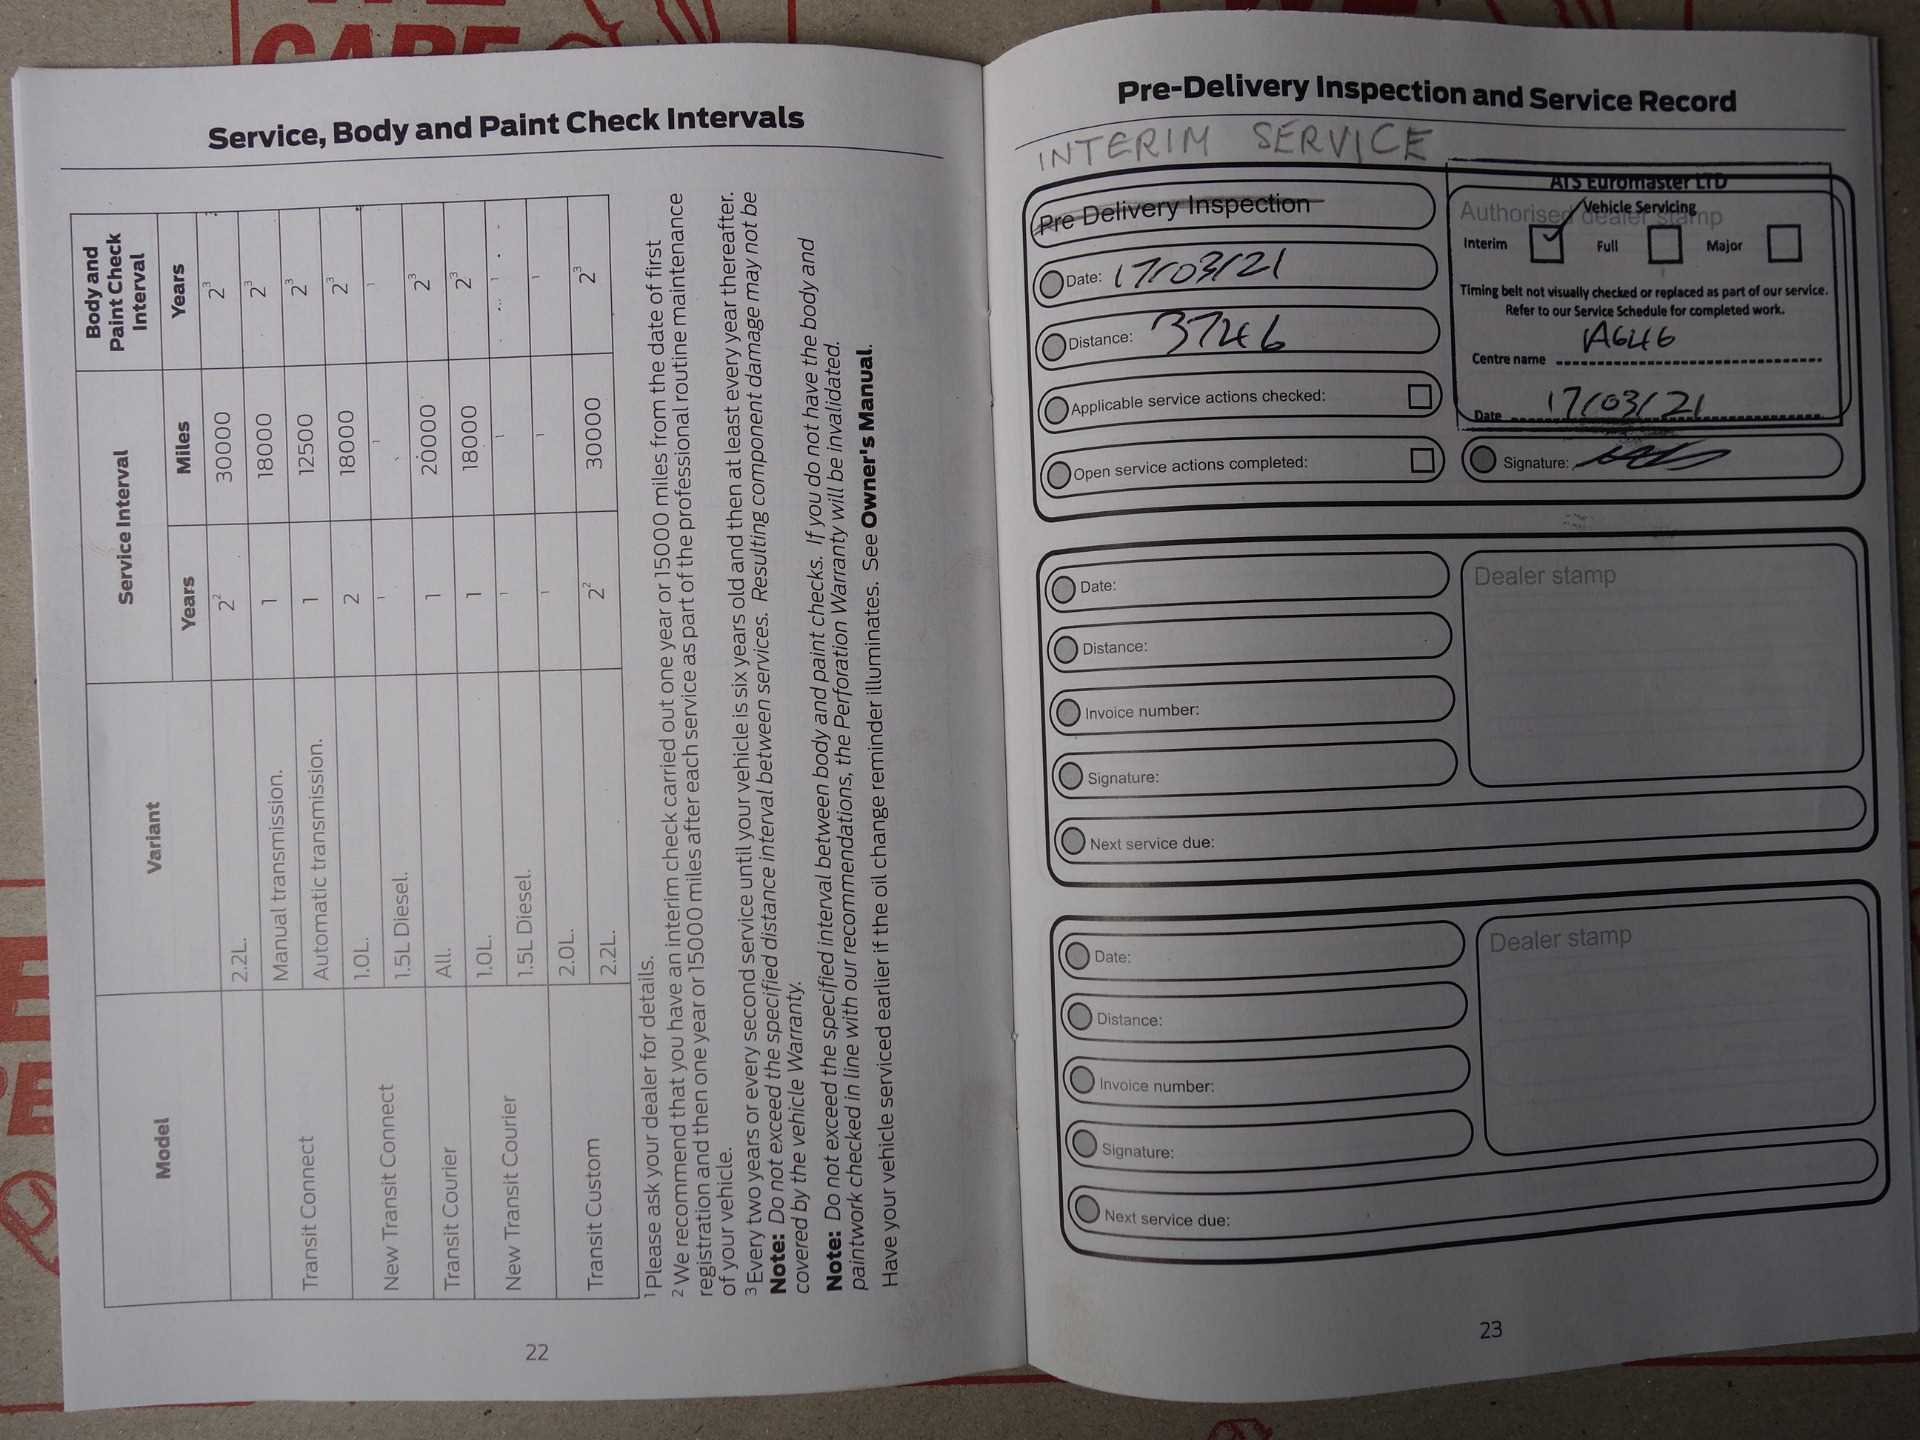 CARE
Service, Body and Paint Check Intervals
Model Variant Service Interval Body and Paint Check Interval
Years Miles Years
2.2L. 2² 30000 2³
Transit Connect Manual transmission. 1 18000 2³
Automatic transmission. 1 12500 2³
New Transit Connect 1.0L. 2 18000 2³
1.5L Diesel. 1 1 1
Transit Courier All. 1 20000 2³
New Transit Courier 1.0L. 1 18000 2³
1.5L Diesel. 1 1 1
Transit Custom 2.0L. 1 1 1
2.2L. 2² 30000 2³
1 Please ask your dealer for details.
2 We recommend that you have an interim check carried out one year or 15000 miles from the date of first
registration and then one year or 15000 miles after each service as part of the professional routine maintenance
of your vehicle.
3 Every two years or every second service until your vehicle is six years old and then at least every year thereafter.
Note: Do not exceed the specified distance interval between services. Resulting component damage may not be
covered by the vehicle Warranty.
Note: Do not exceed the specified interval between body and paint checks. If you do not have the body and
paintwork checked in line with our recommendations, the Perforation Warranty will be invalidated.
Have your vehicle serviced earlier if the oil change reminder illuminates. See Owner's Manual.
22
Pre-Delivery Inspection and Service Record
INTERIM SERVICE
Pre Delivery Inspection
Date: 17/03/21
Distance: 3746
Applicable service actions checked:
Open service actions completed:
Authorised dealer stamp
ATS Euromaster LTD
Vehicle Servicing
Interim Full Major
Timing belt not visually checked or replaced as part of our service.
Refer to our Service Schedule for completed work.
Centre name IA646
Date 17/03/21
Signature:
Date:
Distance:
Invoice number:
Signature:
Next service due:
Dealer stamp
Date:
Distance:
Invoice number:
Signature:
Next service due:
Dealer stamp
23